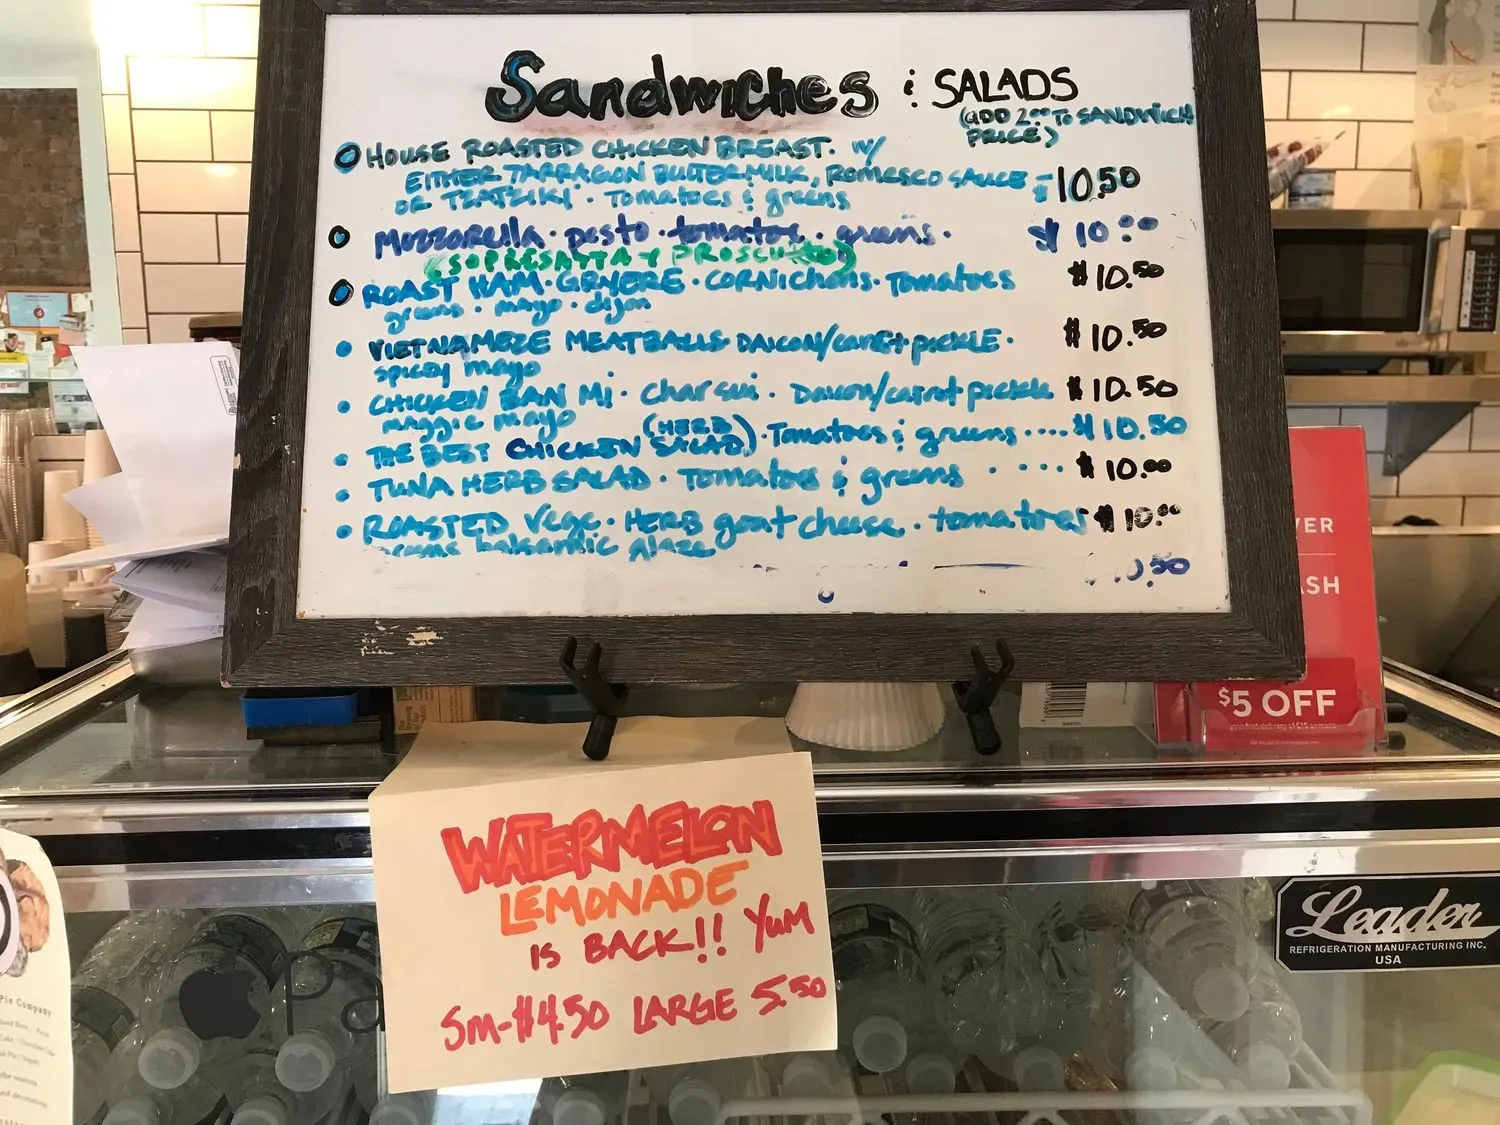 Sandwiches & SALADS
(ADD 2.00 TO SANDWICH
PRICE)
HOUSE ROASTED CHICKEN BREAST. w/
EITHER TARRAGON BUTTERMILK, ROMESCO SAUCE $10.50
OR TZATZIKI · Tomatoes & greens
MOZZARELLA · pesto · tomatoe · greens · $10.00
(SOPRESATTA + PROSCUTTO)
ROAST HAM · GRUYERE · CORNICHONS · Tomatoes $10.50
greens · mayo · dijon
VIETNAMEZE MEATBALLS DAICON/carrot pickle · $10.50
spicey mayo
CHICKEN BAN MI · Char sui · Daicon/carrot pickle $10.50
maggic mayo
THE BEST CHICKEN (HERB SALAD) · Tomatoes & greens .... $10.50
TUNA HERB SALAD · Tomatoes & greens . ... $10.00
ROASTED Vege · HERB goat cheese · tomatoes $10.00
greens balsamic glaze
10.50
VER
ASH
$5 OFF
WATERMELON
LEMONADE
IS BACK!! YUM
Sm-$4.50 LARGE 5.50
Leader
REFRIGERATION MANUFACTURING INC.
USA
Pa
Pie Company